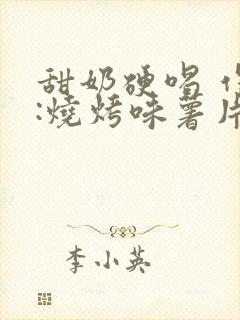 甜奶硬唱
:燒烤味薯片
李小英